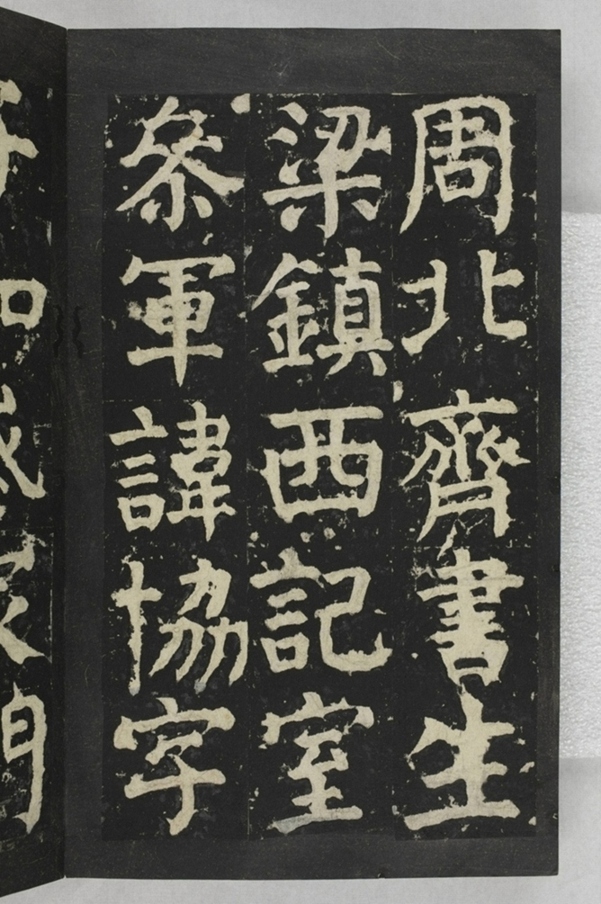 周北齊書生
梁鎮西記室
叅軍諱協字